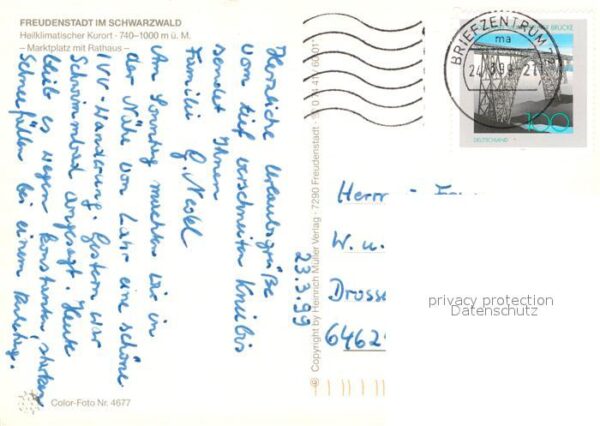 FREUDENSTADT IM SCHWARZWALD
Heilklimatischer Kurort · 740–1000 m ü. M.
– Marktplatz mit Rathaus –
23.3.99
Herzliche Urlaubsgrüße
vom tief verschneiten Kniebis
sendet Ihnen
Familie G.
Am Sonntag machten wir in
der Nähe von Lahr eine schöne
IVV-Wanderung. Gestern war
Schwimmbad angesagt. Heute
bleib es wegen konstanten, starken
Schneefällen bei einem
Color-Foto Nr. 4677
© Copyright by Heinrich Müller Verlag · 7290 Freudenstadt
BRIEFZENTRUM
ma
BRÜCKE
100
DEUTSCHLAND
Herr
W. u.
Drosse
6462
privacy protection
Datenschutz